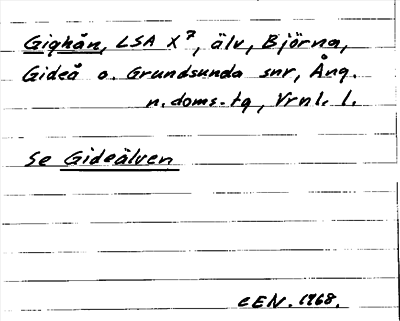 Gighån, LSA X⁷, älv, Björna,
Gideå o. Grundsunda snr, Ång.
n. doms.tg, Vrnl. l.
Se Gideälven
CEN. 1968.